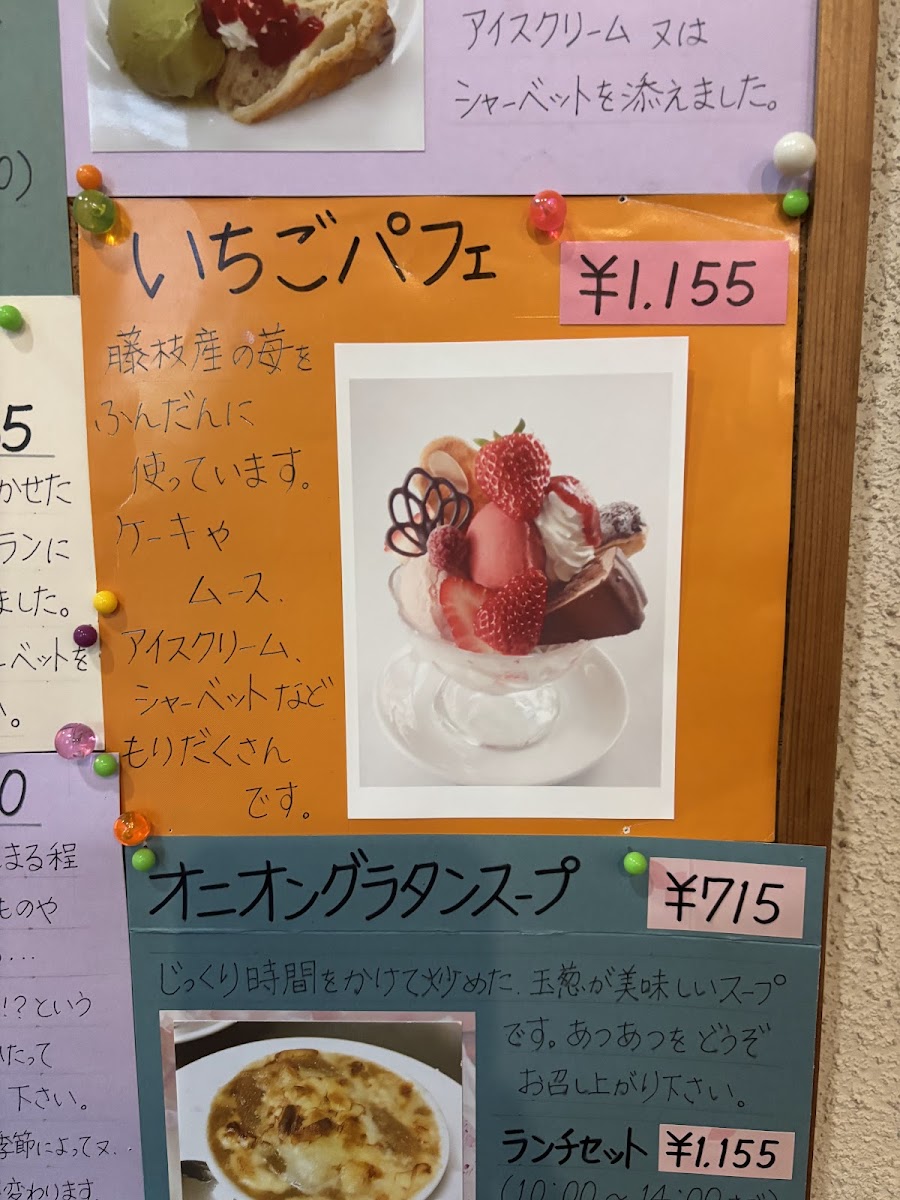 アイスクリーム 又は
シャーベットを添えました。
いちごパフェ
¥1.155
藤枝産の苺を
ふんだんに
使っています。
ケーキや
ムース、
アイスクリーム、
シャーベットなど
もりだくさん
です。
オニオングラタンスープ
¥715
じっくり時間をかけて炒めた、玉葱が美味しいスープ
です。あつあつをどうぞ
お召し上がり下さい。
ランチセット ¥1.155
0)
5
かせた
ランに
ました。
ーベットを
い。
0
まる程
ものや
…
!?という
たって
下さい。
季節によってヌ..
変わります